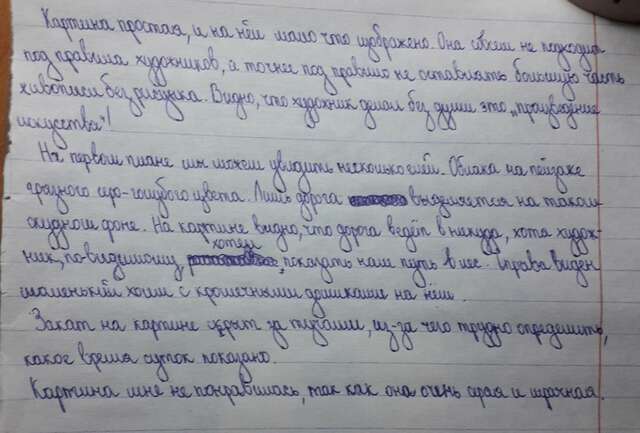 Картина простая, и на ней мало что изображено. Она совсем не подходит
под правила художников, а точнее под правило не оставлять большую часть
живописи без рисунка. Видно, что художник делал без души это „произведение
искусства"!
На первом плане мы можем увидить несколько елей. Облака на пейзаже
грязного серо-голубого цвета. Лишь дорога выделяется на таком
скудном фоне. На картине видно, что дорога ведёт в никуда, хотя худож-
ник, по-видимому, хотел показать нам путь в лес. Справа виден
маленький холм с крошечными домиками на нём.
Закат на картине скрыт за тучами, из-за чего трудно определить,
какое время суток показано.
Картина мне не понравилась, так как она очень серая и мрачная.